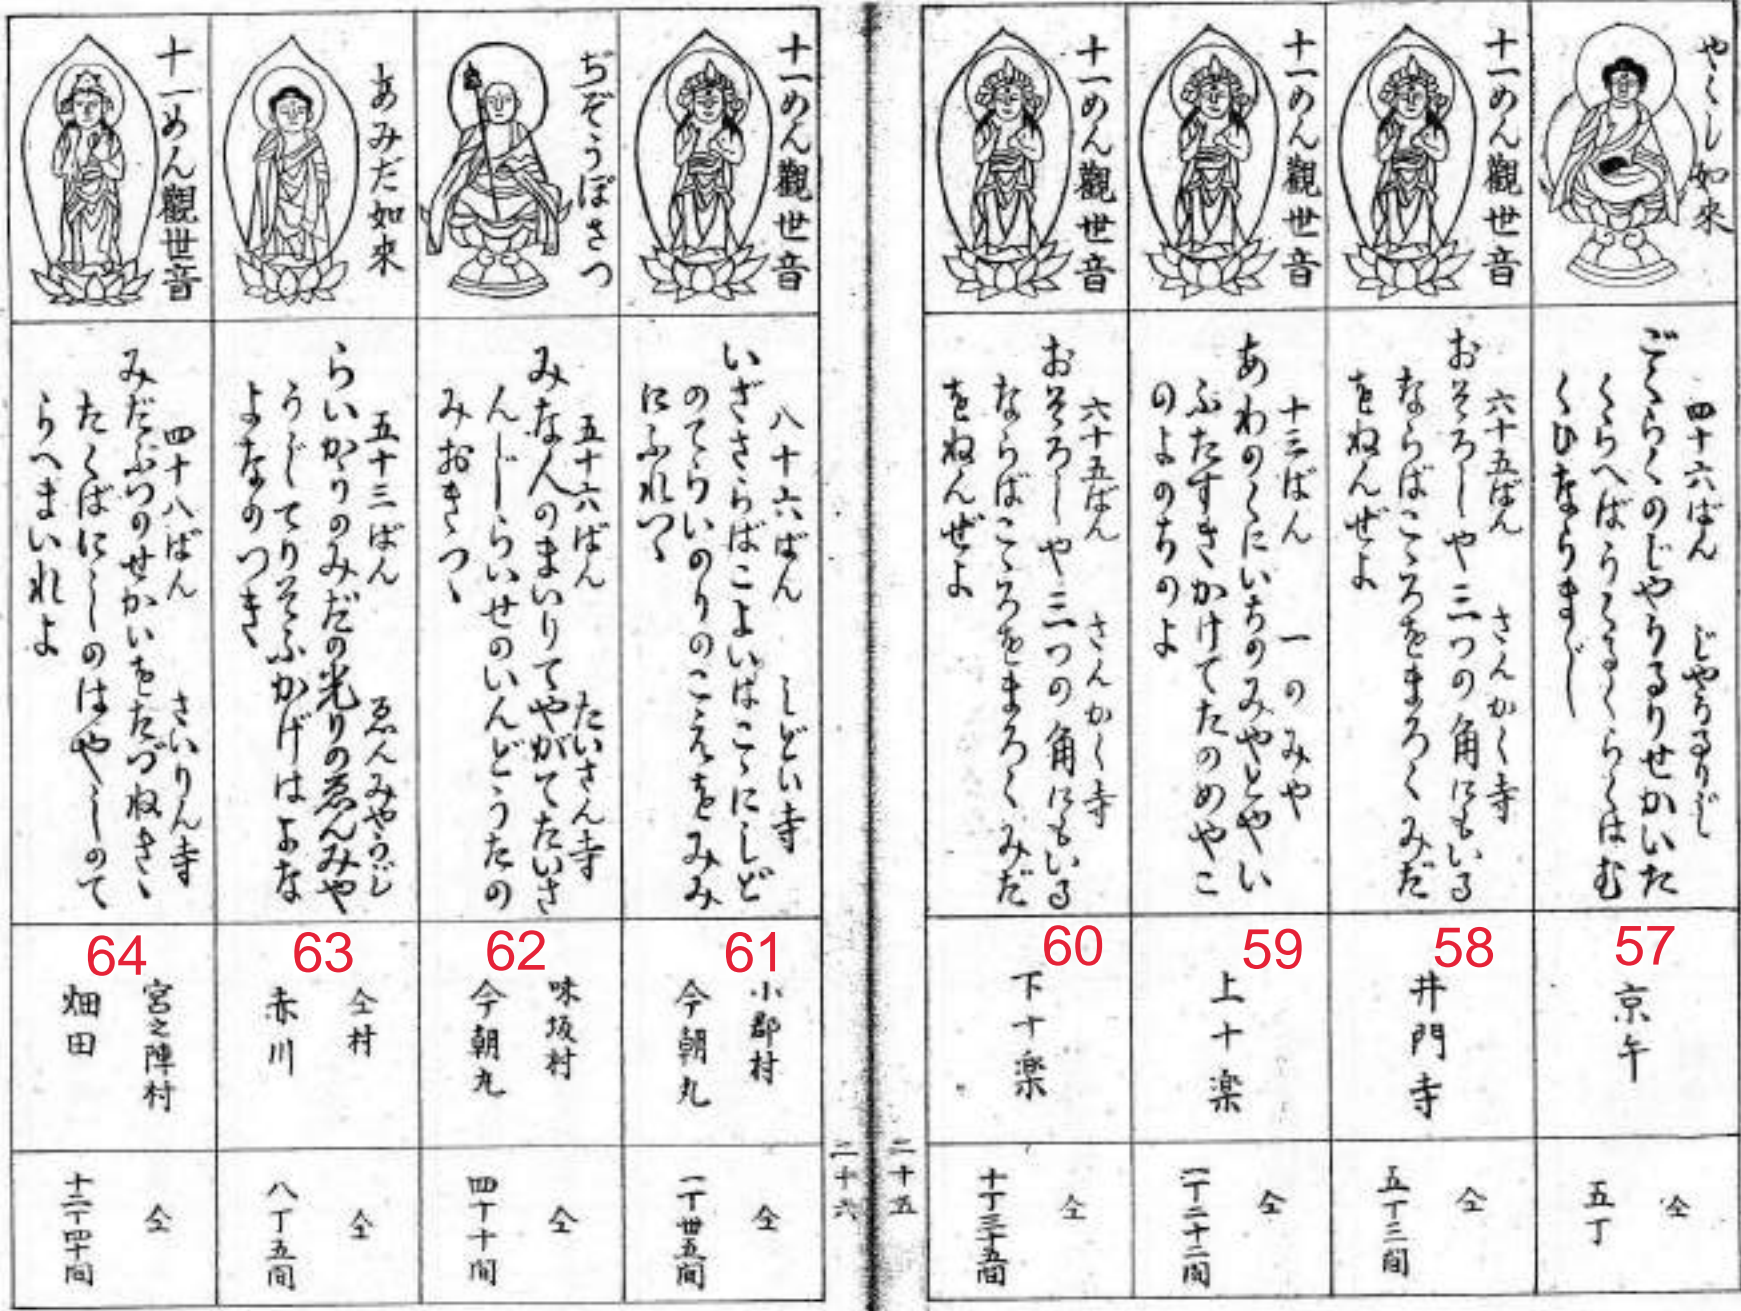 57
やくし如來
四十六ばん じやうるりじ
ごくらくのじやうるりせかいた
くらへばうくるくらくはむ
くひならまじ
京午
仝
五丁
58
十一めん觀世音
六十五ばん さんかく寺
おそろしや三つの角にもいる
ならばこゝろをまろくみだ
をねんぜよ
井門寺
仝
五丁二間
59
十一めん觀世音
十三ばん 一のみや
あわのくにいちのみやとやい
ふたすきかけてたのめやこ
のよのちのよ
上十楽
仝
一丁二十二間
60
十一めん觀世音
六十五ばん さんかく寺
おそろしや三つの角にもいる
ならばこゝろをまろくみだ
をねんぜよ
下十楽
仝
十丁三十五間
二十五
二十六
61
十一めん觀世音
八十六ばん しどい寺
いざさらばこよいはこゝにしど
のてらいのりのこえをみみ
にふれつゝ
小郡村
今朝丸
仝
一丁卅五間
62
ぢぞうぼさつ
五十六ばん たいさん寺
みな人のまいりてやがてたいさ
んじらいせのいんどうたの
みおきつゝ
味坂村
今朝丸
仝
四丁十間
63
あみだ如來
五十三ばん ゑんみやうじ
らいかうのみだの光りのゑんみや
うじてりそふかげはよな
よなのつき
仝村
赤川
仝
八丁五間
64
十一めん觀世音
四十八ばん さいりん寺
みだぶつのせかいをたづねきゝ
たくばにしのはやしのて
らへまいれよ
宮之陣村
畑田
仝
十二丁四十間